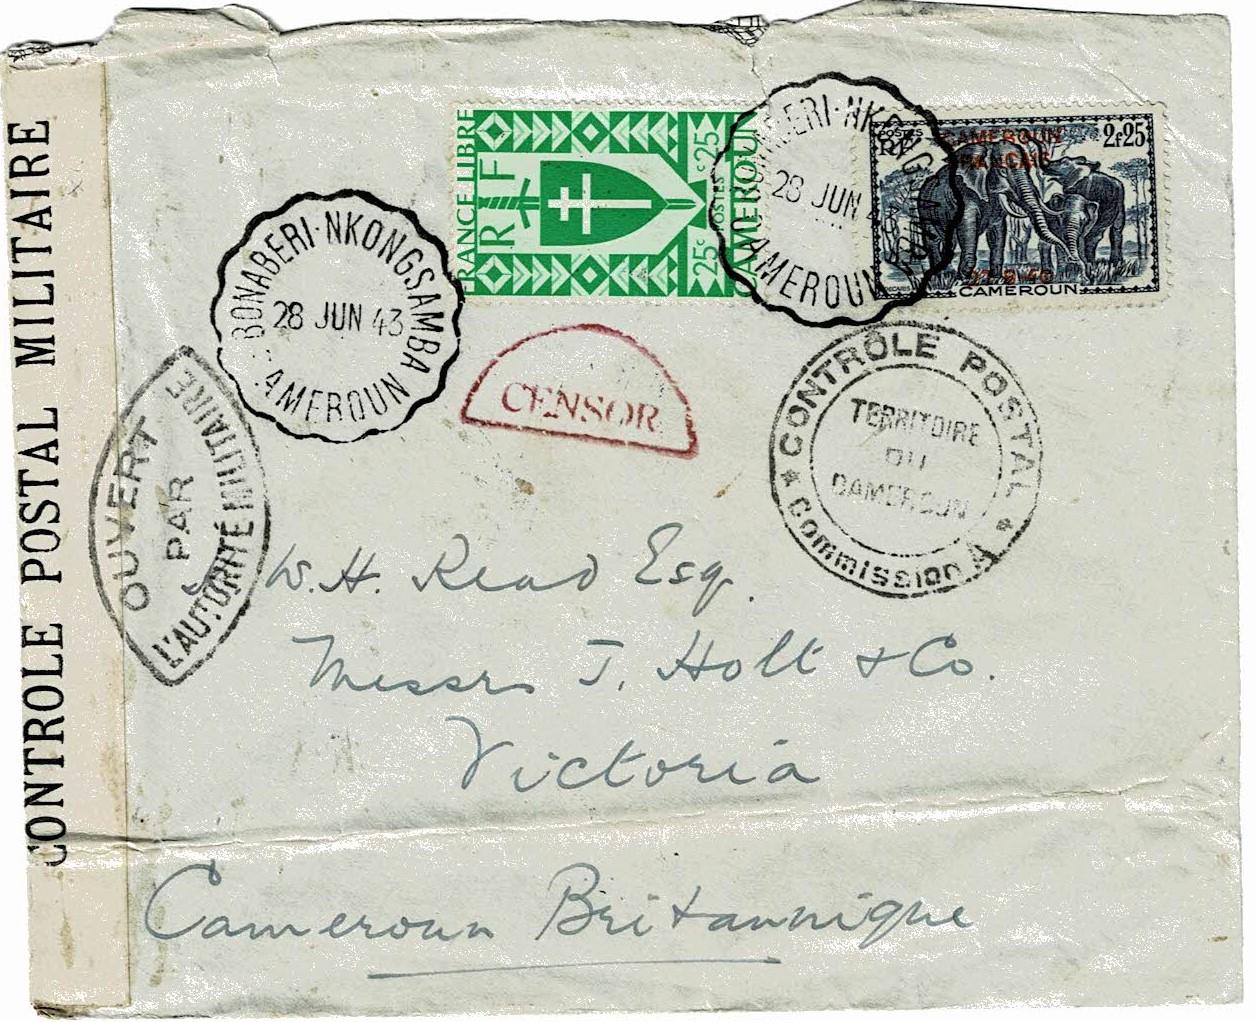 CONTROLE POSTAL MILITAIRE
FRANCE LIBRE
RF
25c POSTES 25c
CAMEROUN
POSTES
RF
CAMEROUN
FRANCAIS
2F25
27.8.40
CAMEROUN
BONABERI·NKONGSAMBA
28 JUN 43
CAMEROUN
BONABERI·NKONGSAMBA
28 JUN 43
CAMEROUN
CENSOR
* CONTRÔLE POSTAL *
TERRITOIRE
DU
CAMEROUN
Commission A
OUVERT
PAR
L'AUTORITÉ MILITAIRE
W. H. Read Esq.
Messrs J. Holt & Co.
Victoria
Cameroun Britannique